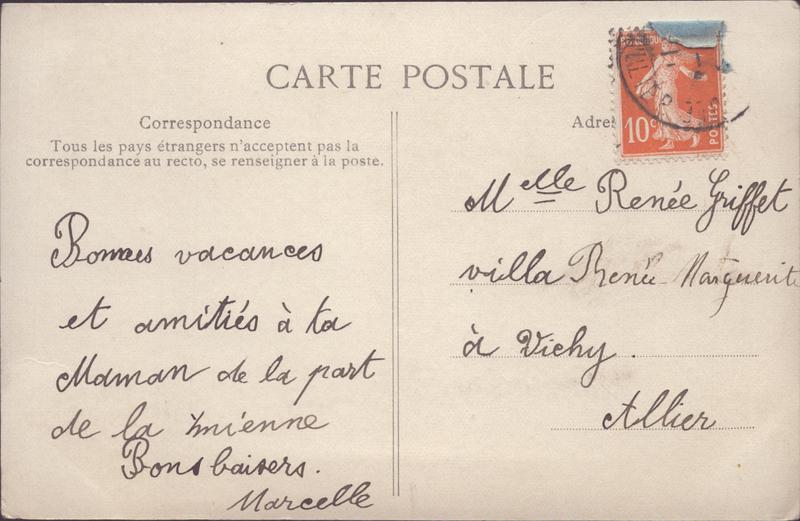 CARTE POSTALE
Correspondance
Tous les pays étrangers n'acceptent pas la
correspondance au recto, se renseigner à la poste.
Bonnes vacances
et amitiés à ta
Maman de la part
de la mienne
Bons baisers.
Marcelle
10c
POSTES
Melle Renée Griffet
villa Renée-Marguerite
à Vichy.
Allier